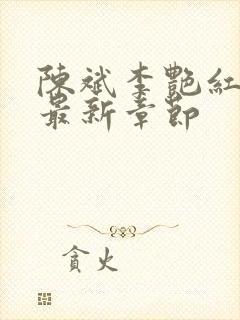 陳斌李艷紅
最新章節
貪火